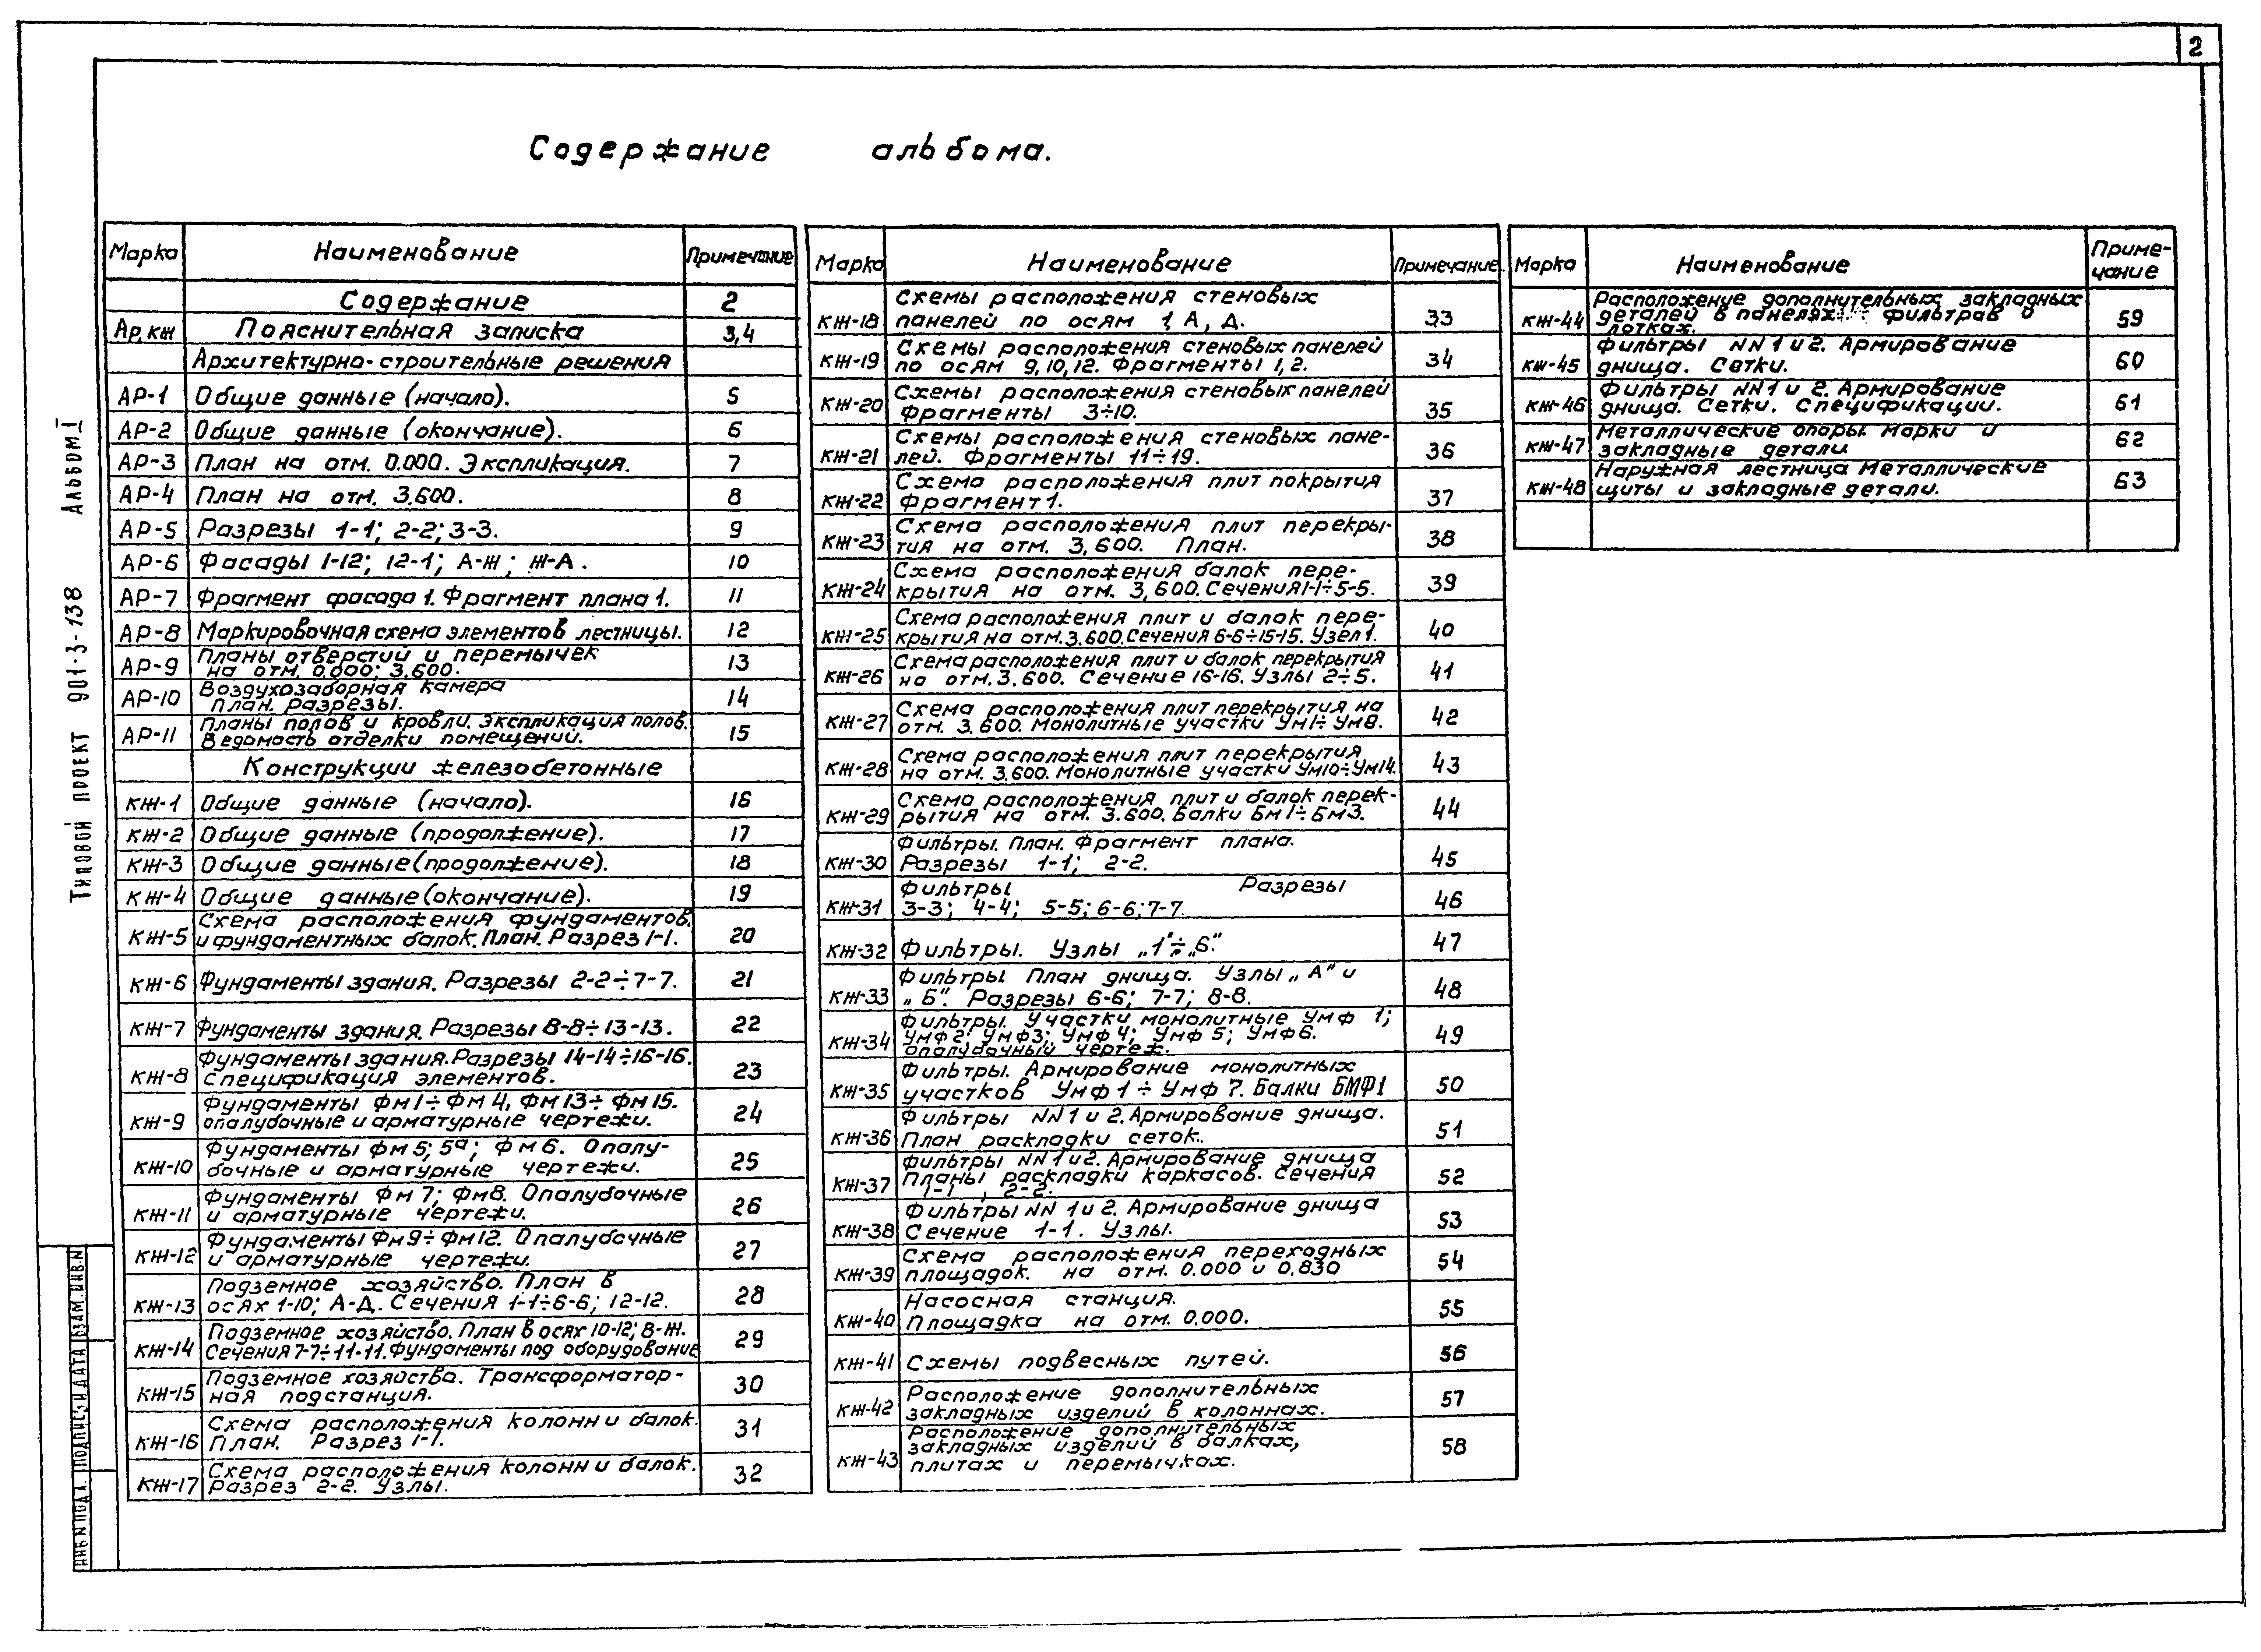 2
Содержание альбома.
Типовой проект 901-3-138 Альбом I
Марка Наименование Примечание
Содержание 2
Ар, КЖ Пояснительная записка 3,4
Архитектурно-строительные решения
АР-1 Общие данные (начало). 5
АР-2 Общие данные (окончание). 6
АР-3 План на отм. 0.000. Экспликация. 7
АР-4 План на отм. 3.600. 8
АР-5 Разрезы 1-1; 2-2; 3-3. 9
АР-6 Фасады 1-12; 12-1; А-Ж; Ж-А. 10
АР-7 Фрагмент фасада 1. Фрагмент плана 1. 11
АР-8 Маркировочная схема элементов лестницы. 12
АР-9 Планы отверстий и перемычек
на отм. 0.000; 3.600. 13
АР-10 Воздухозаборная камера
план. разрезы. 14
АР-11 Планы полов и кровли. Экспликация полов.
Ведомость отделки помещений. 15
Конструкции железобетонные
КЖ-1 Общие данные (начало). 16
КЖ-2 Общие данные (продолжение). 17
КЖ-3 Общие данные (продолжение). 18
КЖ-4 Общие данные (окончание). 19
КЖ-5 Схема расположения фундаментов.
и фундаментных балок. План. Разрез 1-1. 20
КЖ-6 Фундаменты здания. Разрезы 2-2÷7-7. 21
КЖ-7 Фундаменты здания. Разрезы 8-8÷13-13. 22
КЖ-8 Фундаменты здания. Разрезы 14-14÷16-16.
Спецификация элементов. 23
КЖ-9 Фундаменты Фм1÷Фм4, Фм13÷Фм15.
опалубочные и арматурные чертежи. 24
КЖ-10 Фундаменты Фм5; 5а; Фм6. Опалу-
бочные и арматурные чертежи. 25
КЖ-11 Фундаменты Фм7; Фм8. Опалубочные
и арматурные чертежи. 26
КЖ-12 Фундаменты Фм9÷Фм12. Опалубочные
и арматурные чертежи. 27
КЖ-13 Подземное хозяйство. План в
осях 1-10; А-Д. Сечения 1-1÷6-6; 12-12. 28
КЖ-14 Подземное хозяйство. План в осях 10-12; В-Ж.
Сечения 7-7÷11-11. Фундаменты под оборудование 29
КЖ-15 Подземное хозяйства. Трансформатор-
ная подстанция. 30
КЖ-16 Схема расположения колонн и балок.
План. Разрез 1-1. 31
КЖ-17 Схема расположения колонн и балок.
Разрез 2-2. Узлы. 32
Марка Наименование Примечание.
КЖ-18 Схемы расположения стеновых
панелей по осям 1, А, Д. 33
КЖ-19 Схемы расположения стеновых панелей
по осям 9, 10, 12. Фрагменты 1, 2. 34
КЖ-20 Схемы расположения стеновых панелей
Фрагменты 3÷10. 35
КЖ-21 Схемы расположения стеновых пане-
лей. Фрагменты 11÷19. 36
КЖ-22 Схема расположения плит покрытия
Фрагмент 1. 37
КЖ-23 Схема расположения плит перекры-
тия на отм. 3,600. План. 38
КЖ-24 Схема расположения балок пере-
крытия на отм. 3,600. Сечения 1-1÷5-5. 39
КЖ-25 Схема расположения плит и балок пере-
крытия на отм. 3.600. Сечения 6-6÷15-15. Узел 1. 40
КЖ-26 Схема расположения плит и балок перекрытия
на отм. 3.600. Сечение 16-16. Узлы 2÷5. 41
КЖ-27 Схема расположения плит перекрытия на
отм. 3.600. Монолитные участки Ум1÷Ум8. 42
КЖ-28 Схема расположения плит перекрытия
на отм. 3.600. Монолитные участки Ум10÷Ум14. 43
КЖ-29 Схема расположения плит и балок перек-
рытия на отм. 3.600. Балки Бм1÷Бм3. 44
КЖ-30 Фильтры. План. Фрагмент плана.
Разрезы 1-1; 2-2. 45
КЖ-31 Фильтры. Разрезы
3-3; 4-4; 5-5; 6-6; 7-7. 46
КЖ-32 Фильтры. Узлы „1"÷„6". 47
КЖ-33 Фильтры. План днища. Узлы „А" и
„Б". Разрезы 6-6; 7-7; 8-8. 48
КЖ-34 Фильтры. Участки монолитные Умф 1;
Умф2; Умф3; Умф 4; Умф 5; Умф6.
опалубочный чертеж. 49
КЖ-35 Фильтры. Армирование монолитных
участков Умф 1 ÷ Умф 7. Балки БМФ1 50
КЖ-36 Фильтры NN 1 и 2. Армирование днища.
План раскладки сеток. 51
КЖ-37 Фильтры NN 1 и 2. Армирование днища
Планы раскладки каркасов. Сечения
1-1, 2-2. 52
КЖ-38 Фильтры NN 1 и 2. Армирование днища
Сечение 1-1. Узлы. 53
КЖ-39 Схема расположения переходных
площадок. на отм. 0.000 и 0.830 54
КЖ-40 Насосная станция.
Площадка на отм. 0.000. 55
КЖ-41 Схемы подвесных путей. 56
КЖ-42 Расположение дополнительных
закладных изделий в колоннах. 57
КЖ-43 Расположение дополнительных
закладных изделий в балках,
плитах и перемычках. 58
Марка Наименование Приме-
чание
КЖ-44 Расположение дополнительных закладных
деталей в панелях фильтрав о
лотках. 59
КЖ-45 Фильтры NN 1 и 2. Армирование
днища. Сетки. 60
КЖ-46 Фильтры NN 1 и 2. Армирование
днища. Сетки. Спецификации. 61
КЖ-47 Металлические опоры. Марки и
закладные детали 62
КЖ-48 Наружная лестница Металлические
щиты и закладные детали. 63
ИНВ.N ПОДЛ. ПОДПИСЬ И ДАТА ВЗАМ. ИНВ.N